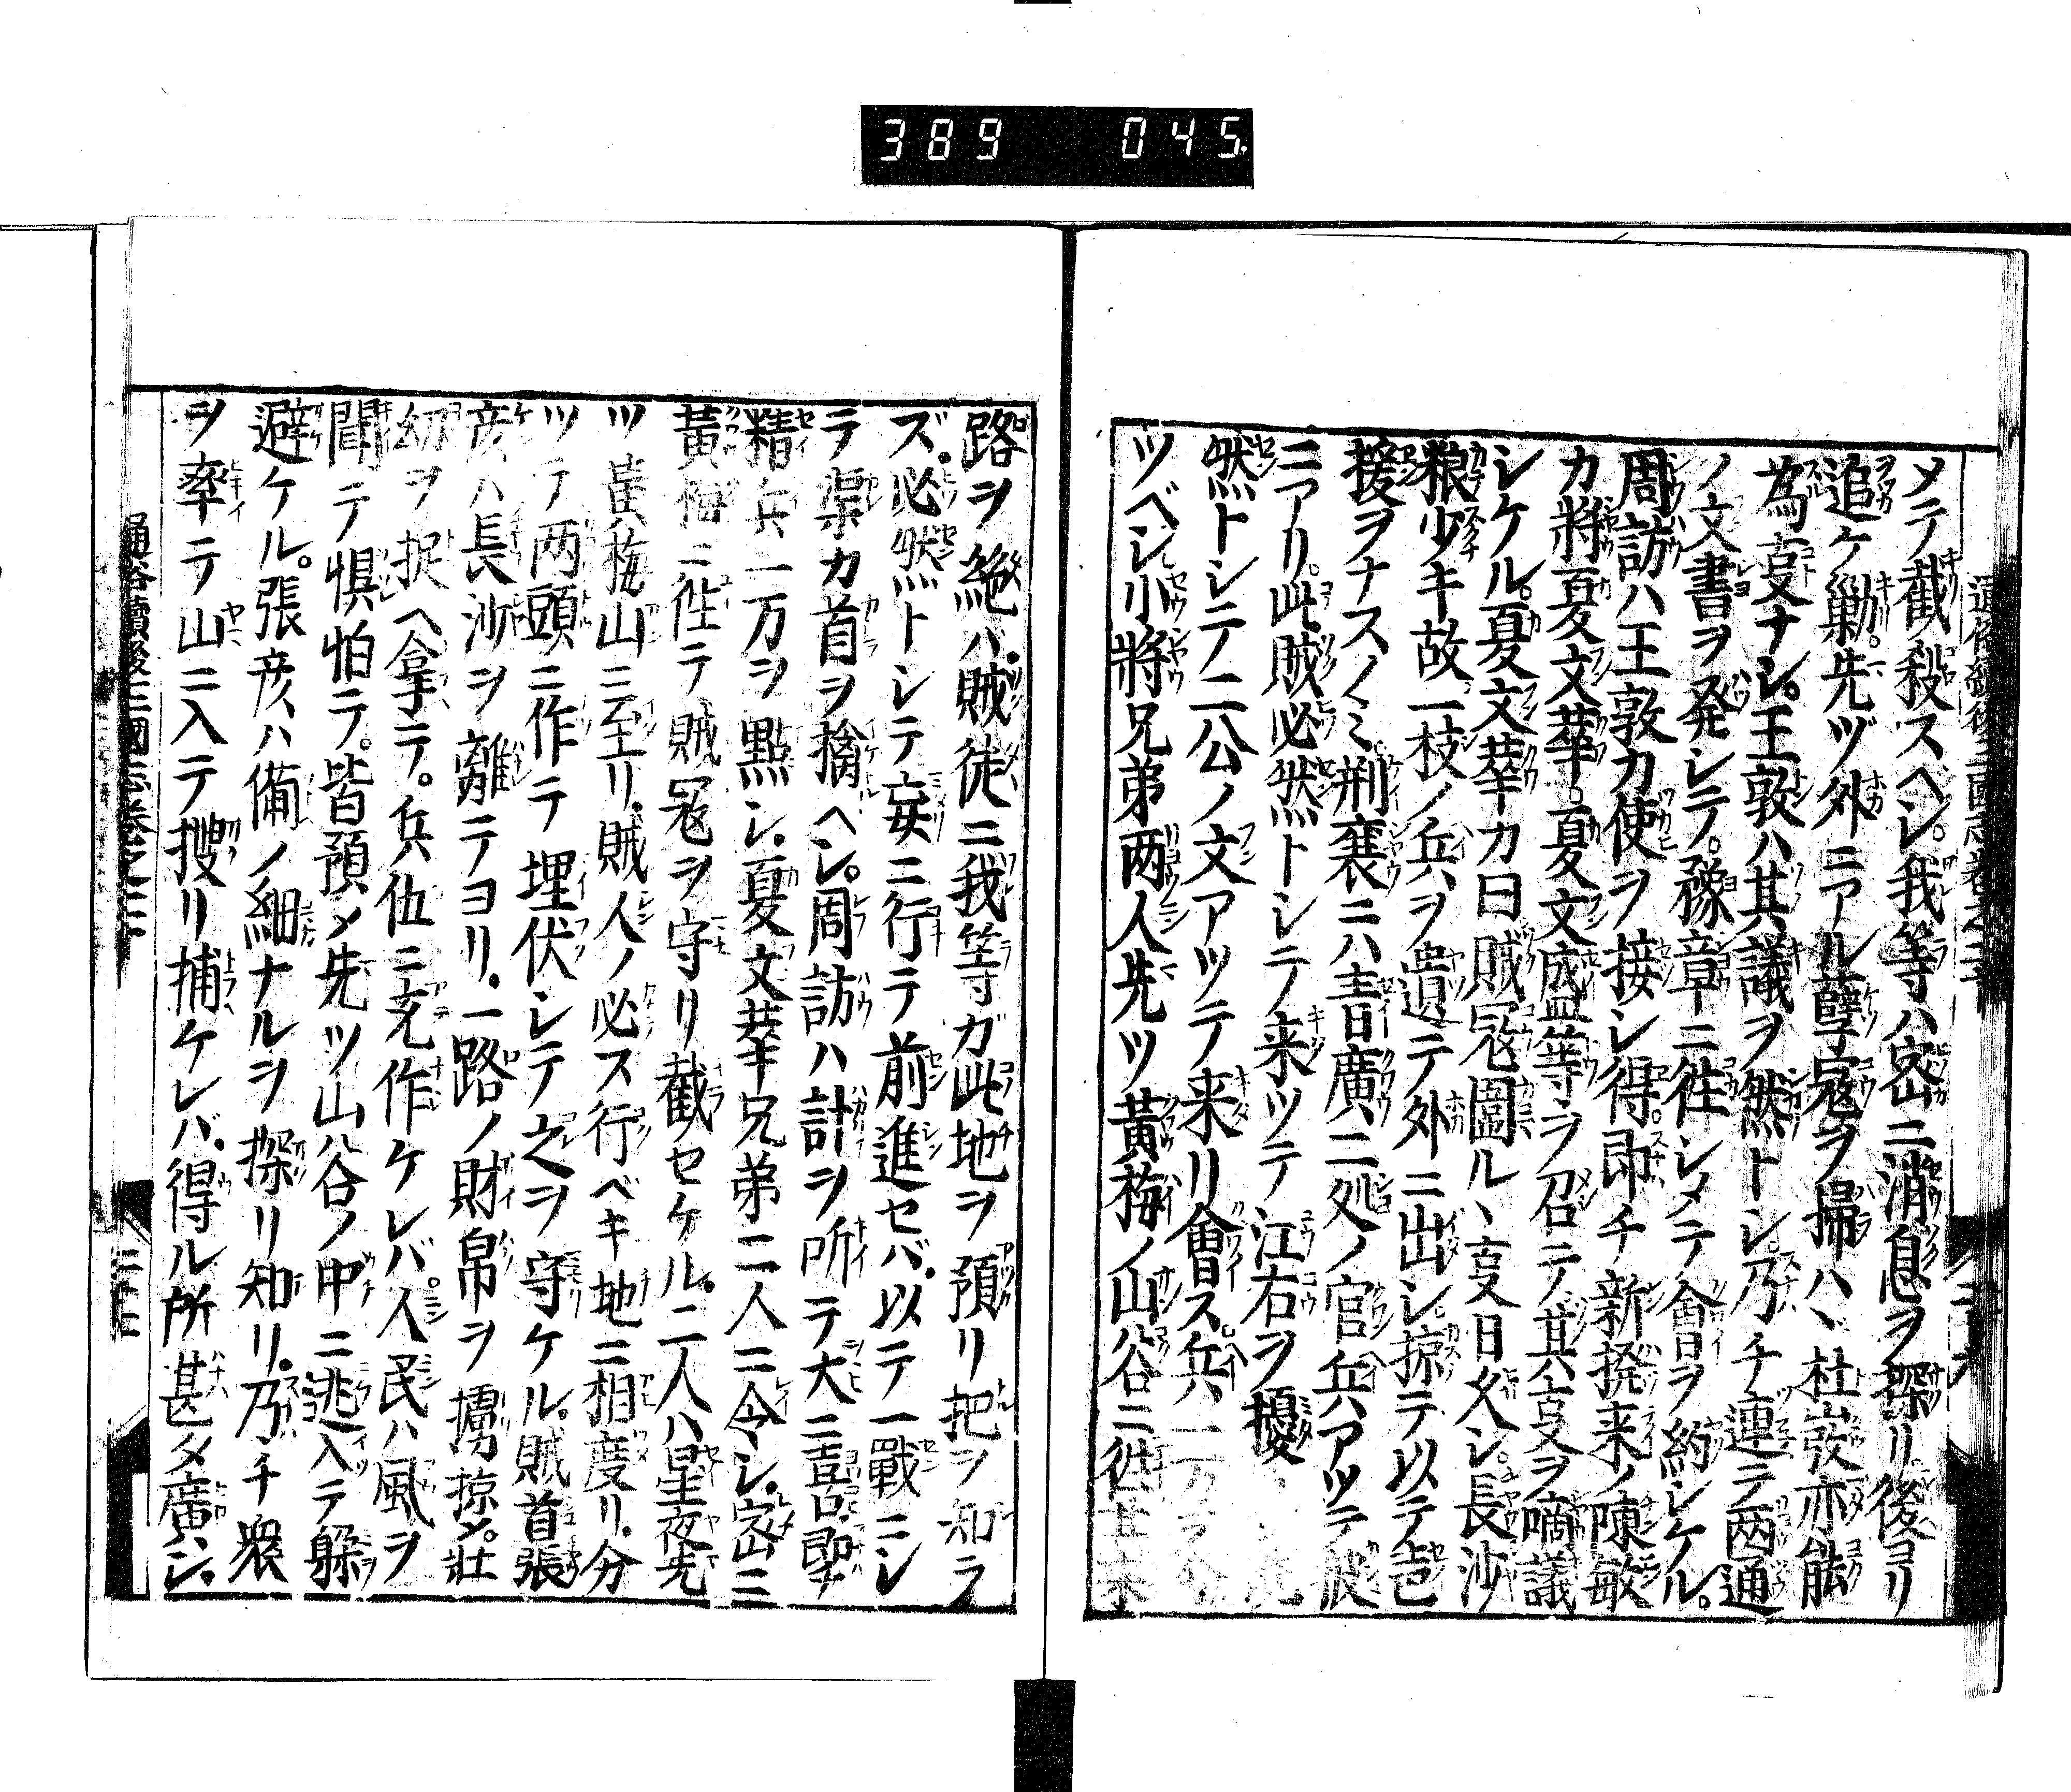 389 045
メテ截殺スヘシ。我等ハ密ニ消息ヲ探リ。後ヨリ
追ケ勦。先ヅ外ニアル孽寇ヲ掃ハヽ杜弢亦能
為叓ナシ。王敦ハ其議ヲ然トシ。乃チ連テ两通
ノ文書ヲ発シテ。豫章ニ徃シメテ會ヲ約シケル。
周訪ハ王敦カ使ヲ接シ得。即チ新撥来ノ陳敏
カ將夏文華。夏文盛等ヲ召テ。其叓ヲ啇議
シケル。夏文華カ曰賊冦圖ルヽ叓日久シ。長沙
粮少キ故一枝ノ兵ヲ遺テ外ニ出シ。掠テ以テ
援ヲナスノミ荆襄ニハ青廣二処ノ官兵アツテ
ニアリ。此賊必然トシテ来ツテ江右ヲ擾
然トシテ二公ノ文アツテ来リ會ス。兵一万ヲ
ツベシ小將兄弟两人先ツ黃梅ノ山谷ニ徃
路ヲ絶バ。賊徒ニ我等ガ此地ヲ預リ把ヲ知ラ
ズ。必然トシテ妄ニ行テ前進セバ。以テ一戰ニシ
テ渠カ首ヲ擒ヘシ。周訪ハ計ヲ听テ大ニ喜。即チ
精兵一万ヲ點シ。夏文華兄弟二人ニ令シ。密ニ
黃梅ニ徃テ賊冦ヲ守リ截セケル。二人ハ星夜先
ツ黃梅山ニ至リ。賊人ノ必ス行ベキ地ニ相度リ。分
ツテ两頭ニ作テ埋伏シテ之ヲ守ケル。賊首張
彦ハ長沙ヲ離テヨリ。一路ノ財帛ヲ擄掠メ。壯
幼ヲ捉ヘ拿テ。兵伍ニ充作ケレバ。人民ハ風ヲ
聞テ惧怕テ。皆預メ先ツ山谷ノ中ニ迯入テ躲
避ケル。張彦ハ備ノ細ナルヲ探リ知リ。乃チ衆
ヲ率テ山ニ入テ搜リ捕ケレバ。得ル所甚タ廣シ。
通俗續後三國志卷之二十